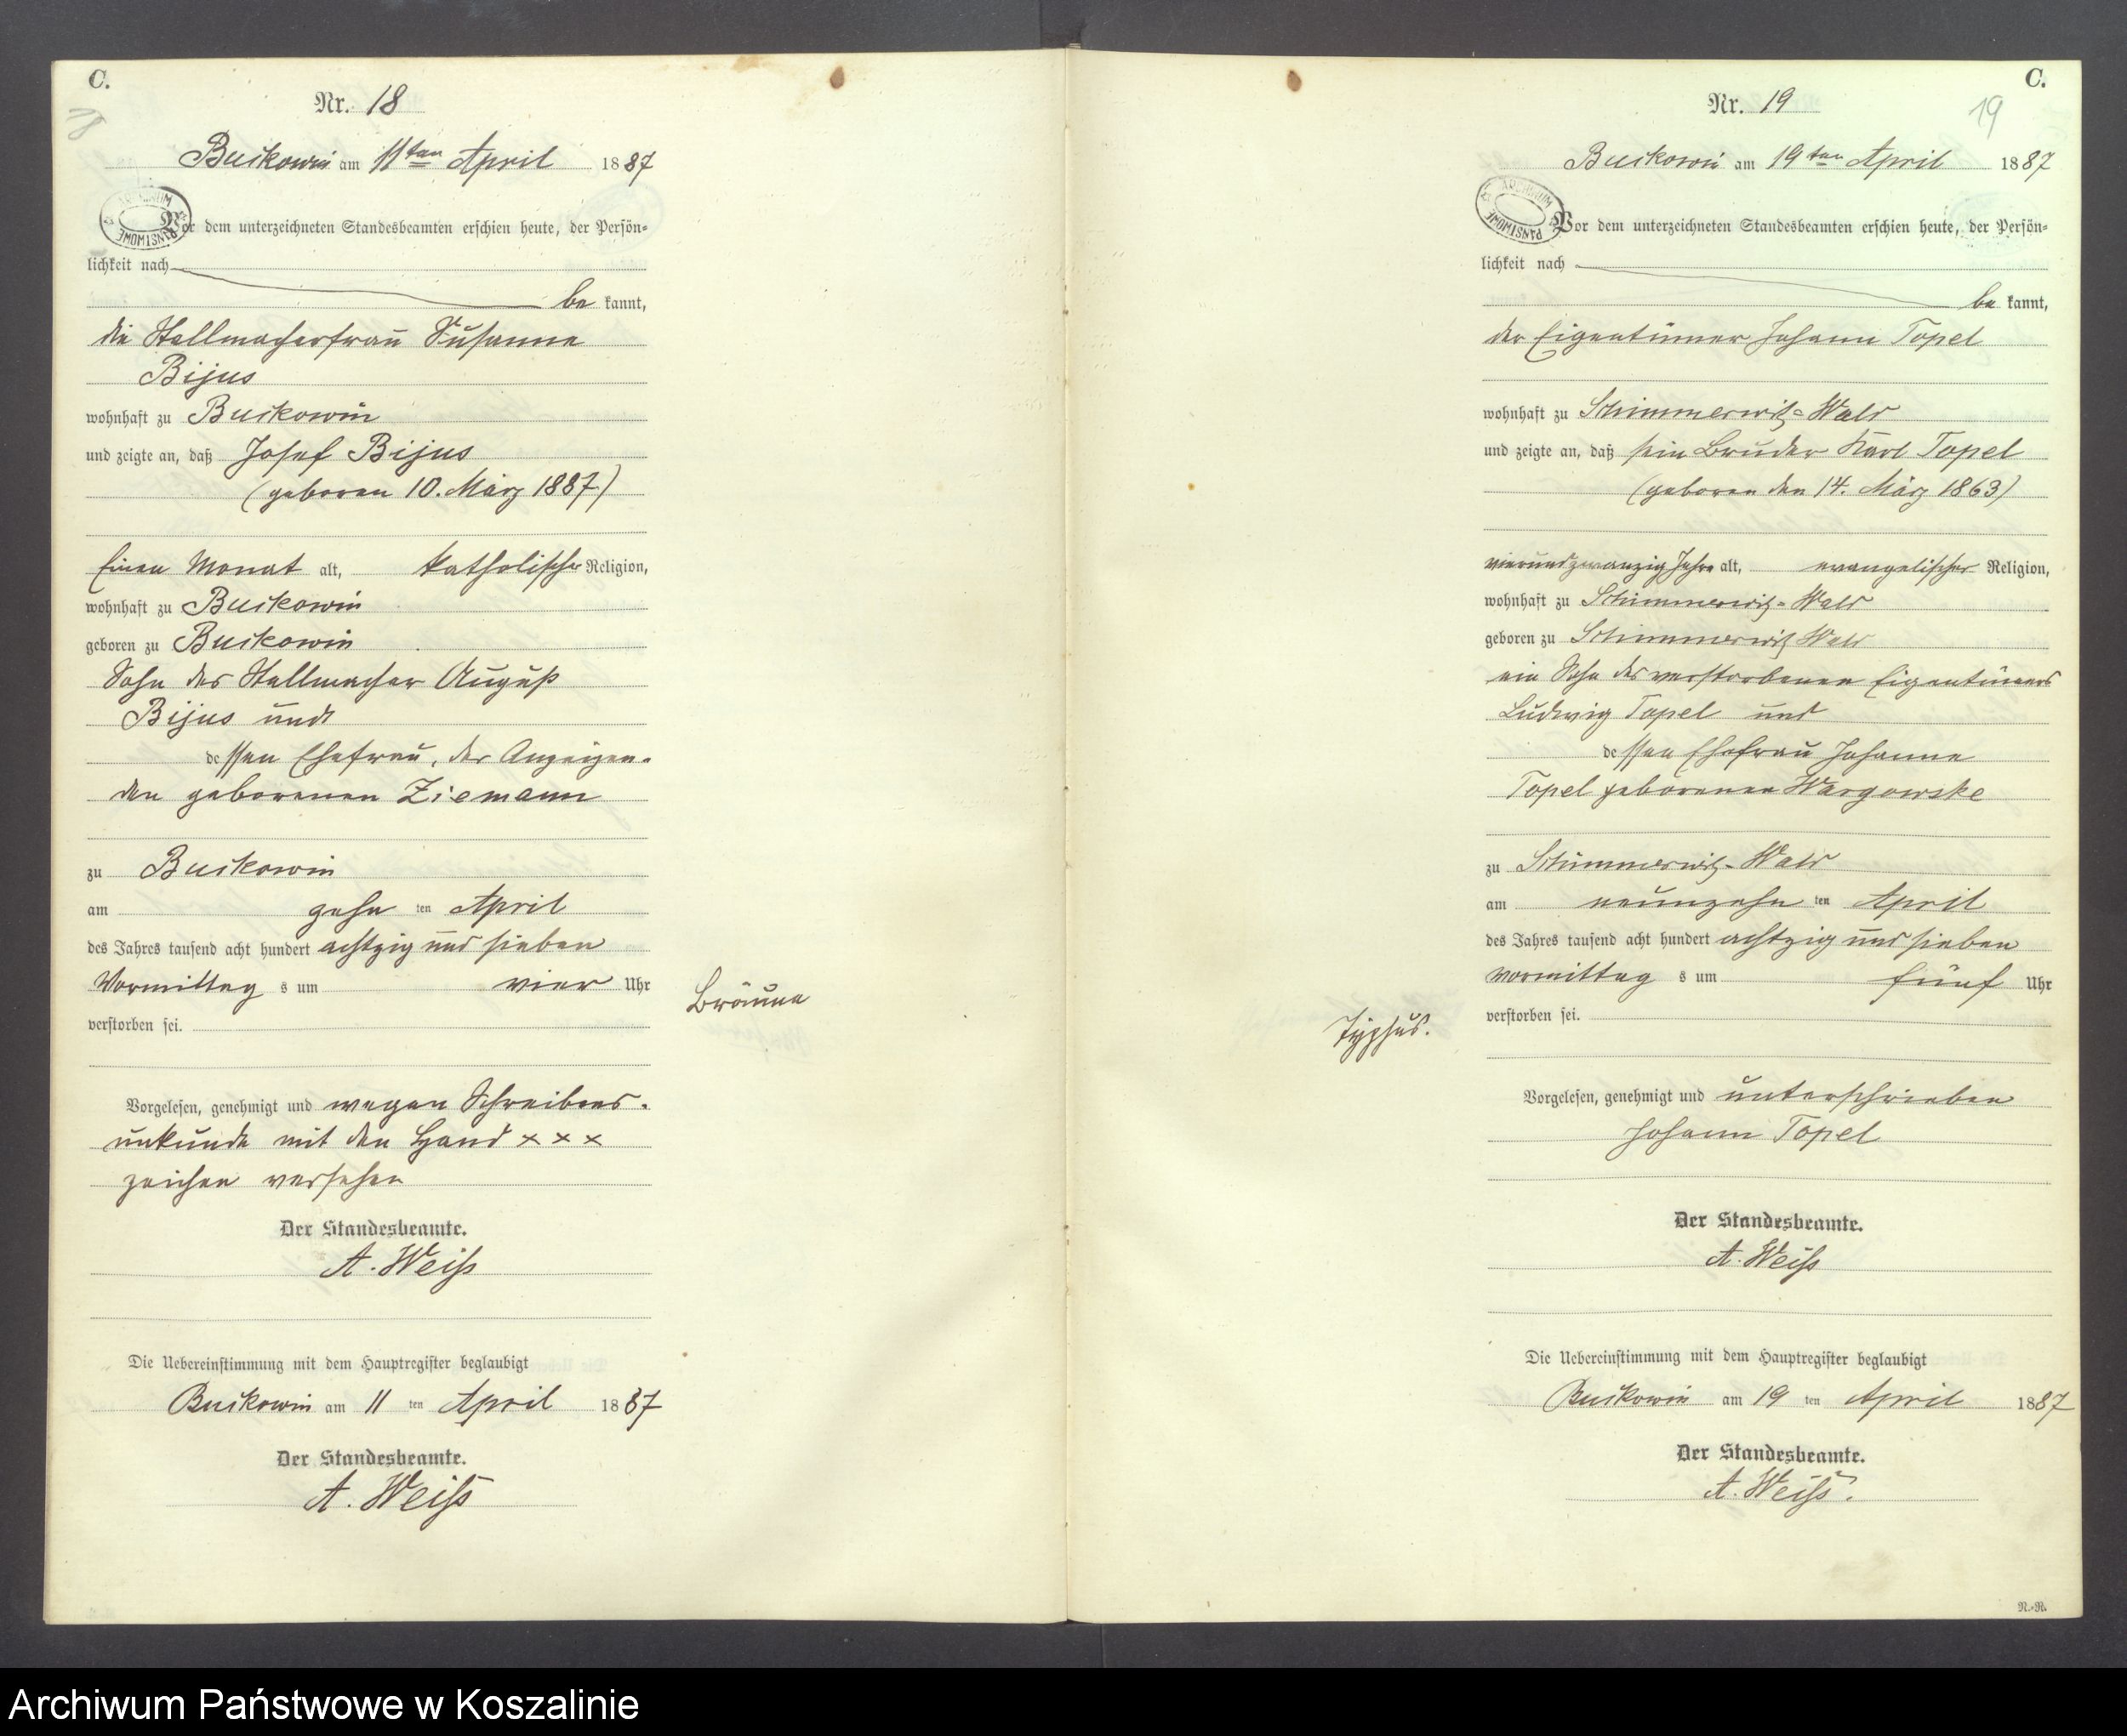 C.
18
Nr. 18
Buckowin am 11ten April 1887
ARCHIWUM PAŃSTWOWE
Vor dem unterzeichneten Standesbeamten erschien heute, der Persön-
lichkeit nach
be kannt,
die Stellmacherfrau Susanna
Bijus
wohnhaft zu Buckowin
und zeigte an, daß Josef Bijus
(geboren 10. März 1887)
Einen Monat alt, katholischer Religion,
wohnhaft zu Buckowin
geboren zu Buckowin
Sohn des Stellmacher August
Bijus und
dessen Ehefrau, der Anzeigen-
den geborenen Ziemann
zu Buckowin
am zehn ten April
des Jahres tausend acht hundert achtzig und sieben
Vormittag s um vier Uhr
verstorben sei.
Bräune
Vorgelesen, genehmigt und wegen Schreibens-
unkunde mit den Hand x x x
zeichen versehen
Der Standesbeamte.
A. Weiß
Die Uebereinstimmung mit dem Hauptregister beglaubigt
Buckowin am 11 ten April 1887
Der Standesbeamte.
A. Weiß
C.
19
Nr. 19
Buckowin am 19ten April 1887
ARCHIWUM PAŃSTWOWE
Vor dem unterzeichneten Standesbeamten erschien heute, der Persön-
lichkeit nach
be kannt,
der Eigentümer Johann Topel
wohnhaft zu Schimmerwitz-Wald
und zeigte an, daß sein Bruder Karl Topel
(geboren den 14. März 1863)
vierundzwanzig Jahre alt, evangelischer Religion,
wohnhaft zu Schimmerwitz-Wald
geboren zu Schimmerwitz Wald
ein Sohn des verstorbenen Eigentümers
Ludwig Topel und
dessen Ehefrau Johanne
Topel geborenen Wargowske
zu Schimmerwitz-Wald
am neunzehn ten April
des Jahres tausend acht hundert achtzig und sieben
vormittag s um fünf Uhr
verstorben sei.
Typhus.
Vorgelesen, genehmigt und unterschrieben
Johann Topel
Der Standesbeamte.
A. Weiß
Die Uebereinstimmung mit dem Hauptregister beglaubigt
Buckowin am 19 ten April 1887
Der Standesbeamte.
A. Weiß.
R.-R.
Archiwum Państwowe w Koszalinie